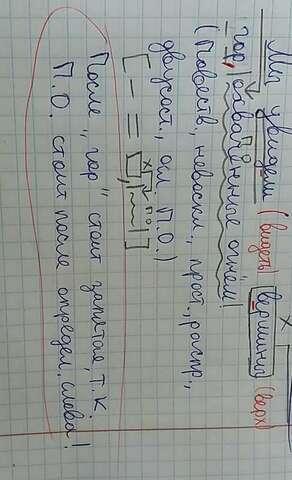 Мы увидели (видеть) вершины (верх)
гор, | охваченные огнём. |
(Повеств, невоскл., прост., распр.,
двусост., осл. П.О.)
[ – = ▭, |~~~| ]
После „гор" стоит запятая, т.к.
П.О. стоит после определ. слова!